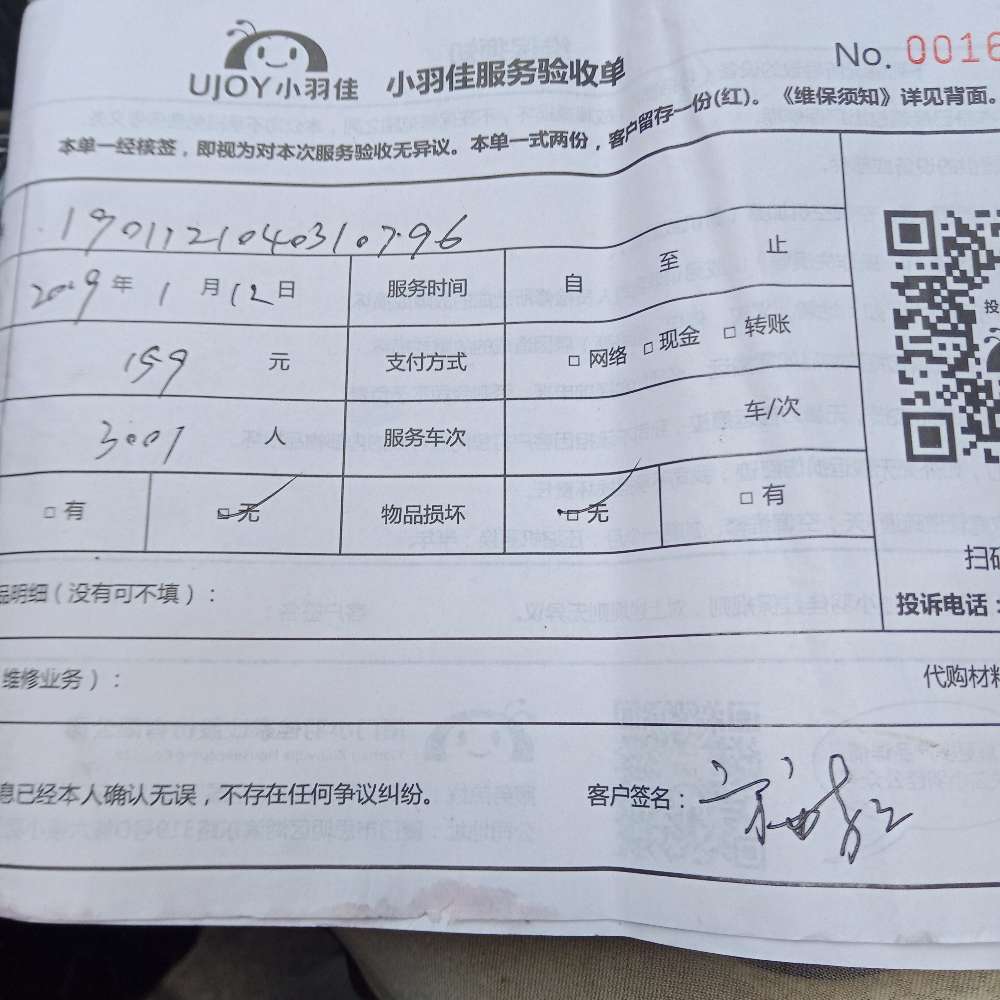 UJOY小羽佳 小羽佳服务验收单 No. 0016
本单一经核签，即视为对本次服务验收无异议。本单一式两份，客户留存一份(红)。《维保须知》详见背面。
2019年1月12日 服务时间 自 至 止
159 元 支付方式 □ 网络 □ 现金 □ 转账
人 服务车次 车/次
□ 有 □ 无 物品损坏 □ 无 □ 有
品明细（没有可不填）：
扫码
投诉电话：
维修业务）： 代购材料
息已经本人确认无误，不存在任何争议纠纷。 客户签名：